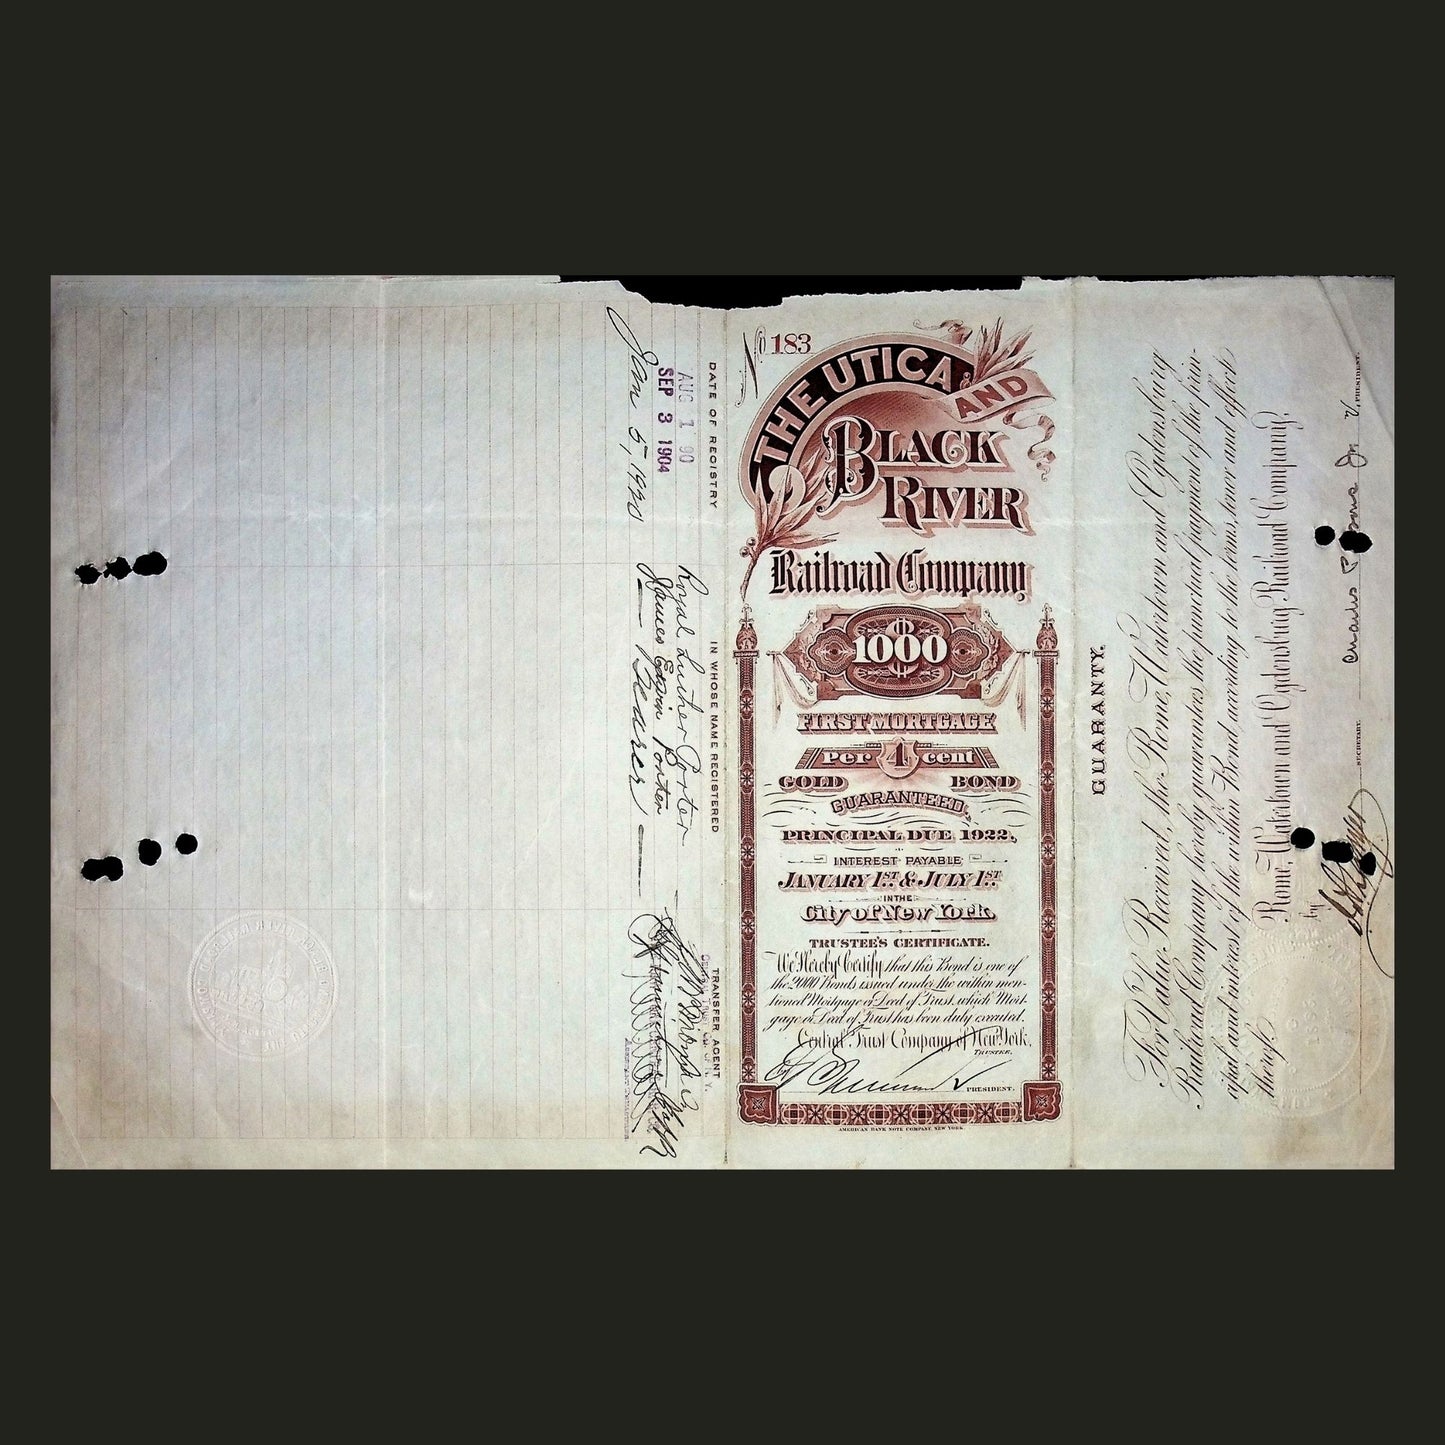 No 183
THE UTICA AND
BLACK
RIVER
Railroad Company
$1000
FIRST MORTGAGE
Per 4 cent
GOLD BOND
GUARANTEED,
PRINCIPAL DUE 1922,
INTEREST PAYABLE
JANUARY 1ST & JULY 1ST
IN THE
City of New York.
TRUSTEE'S CERTIFICATE.
We Hereby Certify that this Bond is one of
the 2000 Bonds issued under the within men-
tioned Mortgage or Deed of Trust, which Mort-
gage or Deed of Trust has been duly executed.
Central Trust Company of New York,
TRUSTEE.
PRESIDENT.
AMERICAN BANK NOTE COMPANY, NEW YORK.
DATE OF REGISTRY
IN WHOSE NAME REGISTERED
TRANSFER AGENT
AUG 1 90
Royal Luther Porter
SEP 3 1904
James Edwin Porter
Jan 5, 1920
Bearer
GUARANTY.
For Value Received, the Rome, Watertown and Ogdensburg
Railroad Company hereby guarantees the punctual payment of the prin-
cipal and interest of the within Bond, according to the terms, tenor and effect
thereof.
Rome, Watertown and Ogdensburg Railroad Company,
by
SECRETARY.
V. PRESIDENT.